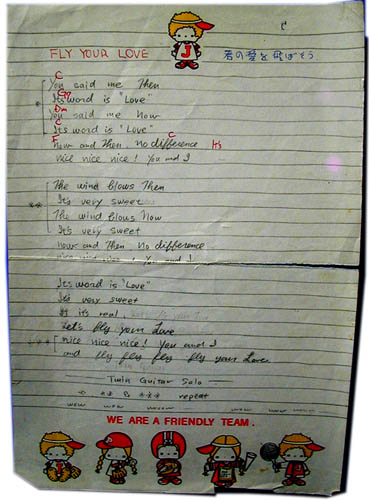 FLY YOUR LOVE 君の愛を飛ばそう
C
You said me Then
Em
It's word is "Love"
Dm
You said me Now
C
It's word is "Love"
F C
Now and Then No difference It's
nice nice nice! You and I
The wind blows Then
It's very sweet
The wind blows Now
It's very sweet
now and Then No difference
nice nice nice! You and I
It's word is "Love"
It's very sweet
If it's real
Let's fly your Love
nice nice nice! You and I
and fly fly fly fly your Love
Twin Guitar Solo
repeat
WE ARE A FRIENDLY TEAM.